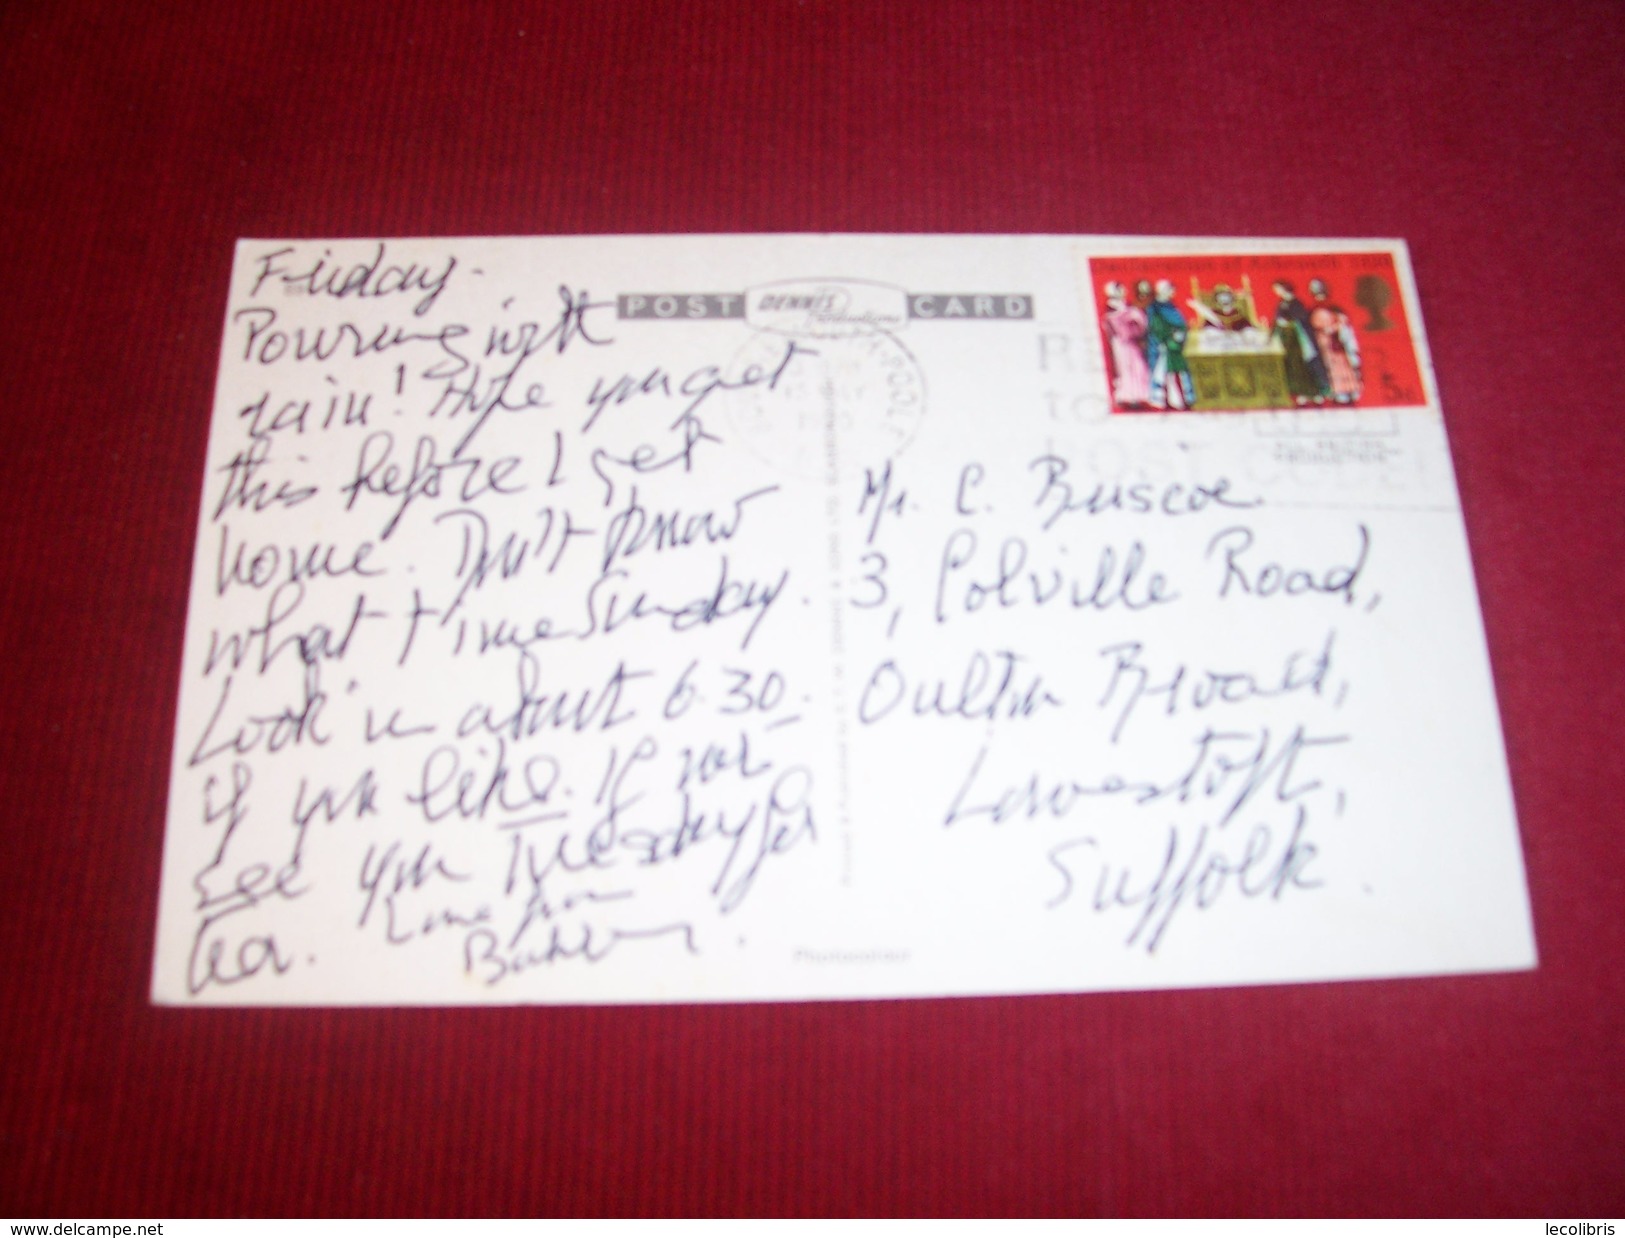 Friday.
Pouring with
rain! Hope you get
this before I get
home. Don't know
what time Sunday.
Look in about 6.30
if you like. If not
see you Tuesday for
tea. Love from
POST CARD
DENNIS
Productions
Mr. C. Briscoe
3, Colville Road,
Oulton Broad,
Lowestoft,
Suffolk.
5d
POST CODE
Photocolour
www.delcampe.net
lecolibris